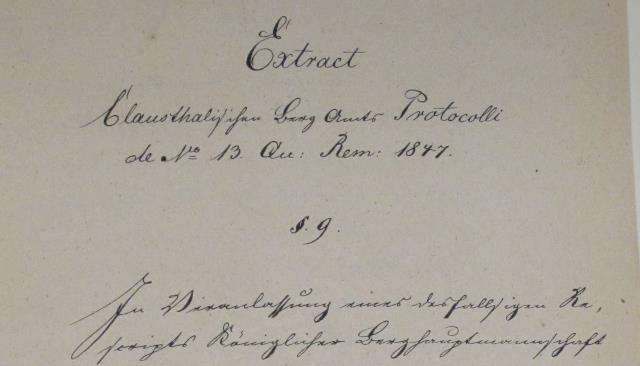 Extract
Clausthalischen Berg Amts Protocolli
de No 13. Qu: Rem: 1847.
§. 9.
In Veranlassung eines desfallsigen Re,
scripts Königlicher Berghauptmannschaft